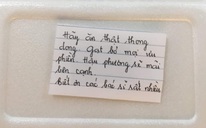 Hãy ăn thật thong
dong gạt bỏ mọi ưu
phiền. Hậu phương sẽ mãi
bên cạnh.
Biết ơn các bác sĩ rất nhiều